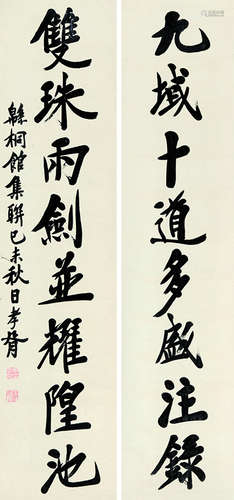 九域十道多注錄
雙珠兩劍並耀隍池
緜桐館集聯己未秋日孝胥